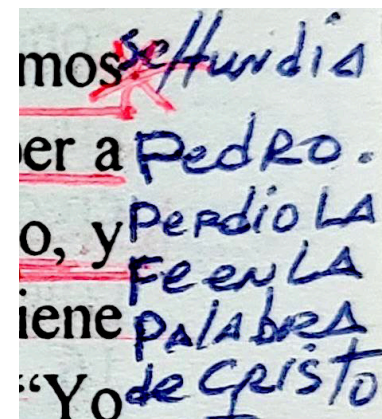 mos se Hundia
er a PedRo.
o, y PeRdio LA
Fe en LA
iene PALAbRA
“Yo de CRISTO